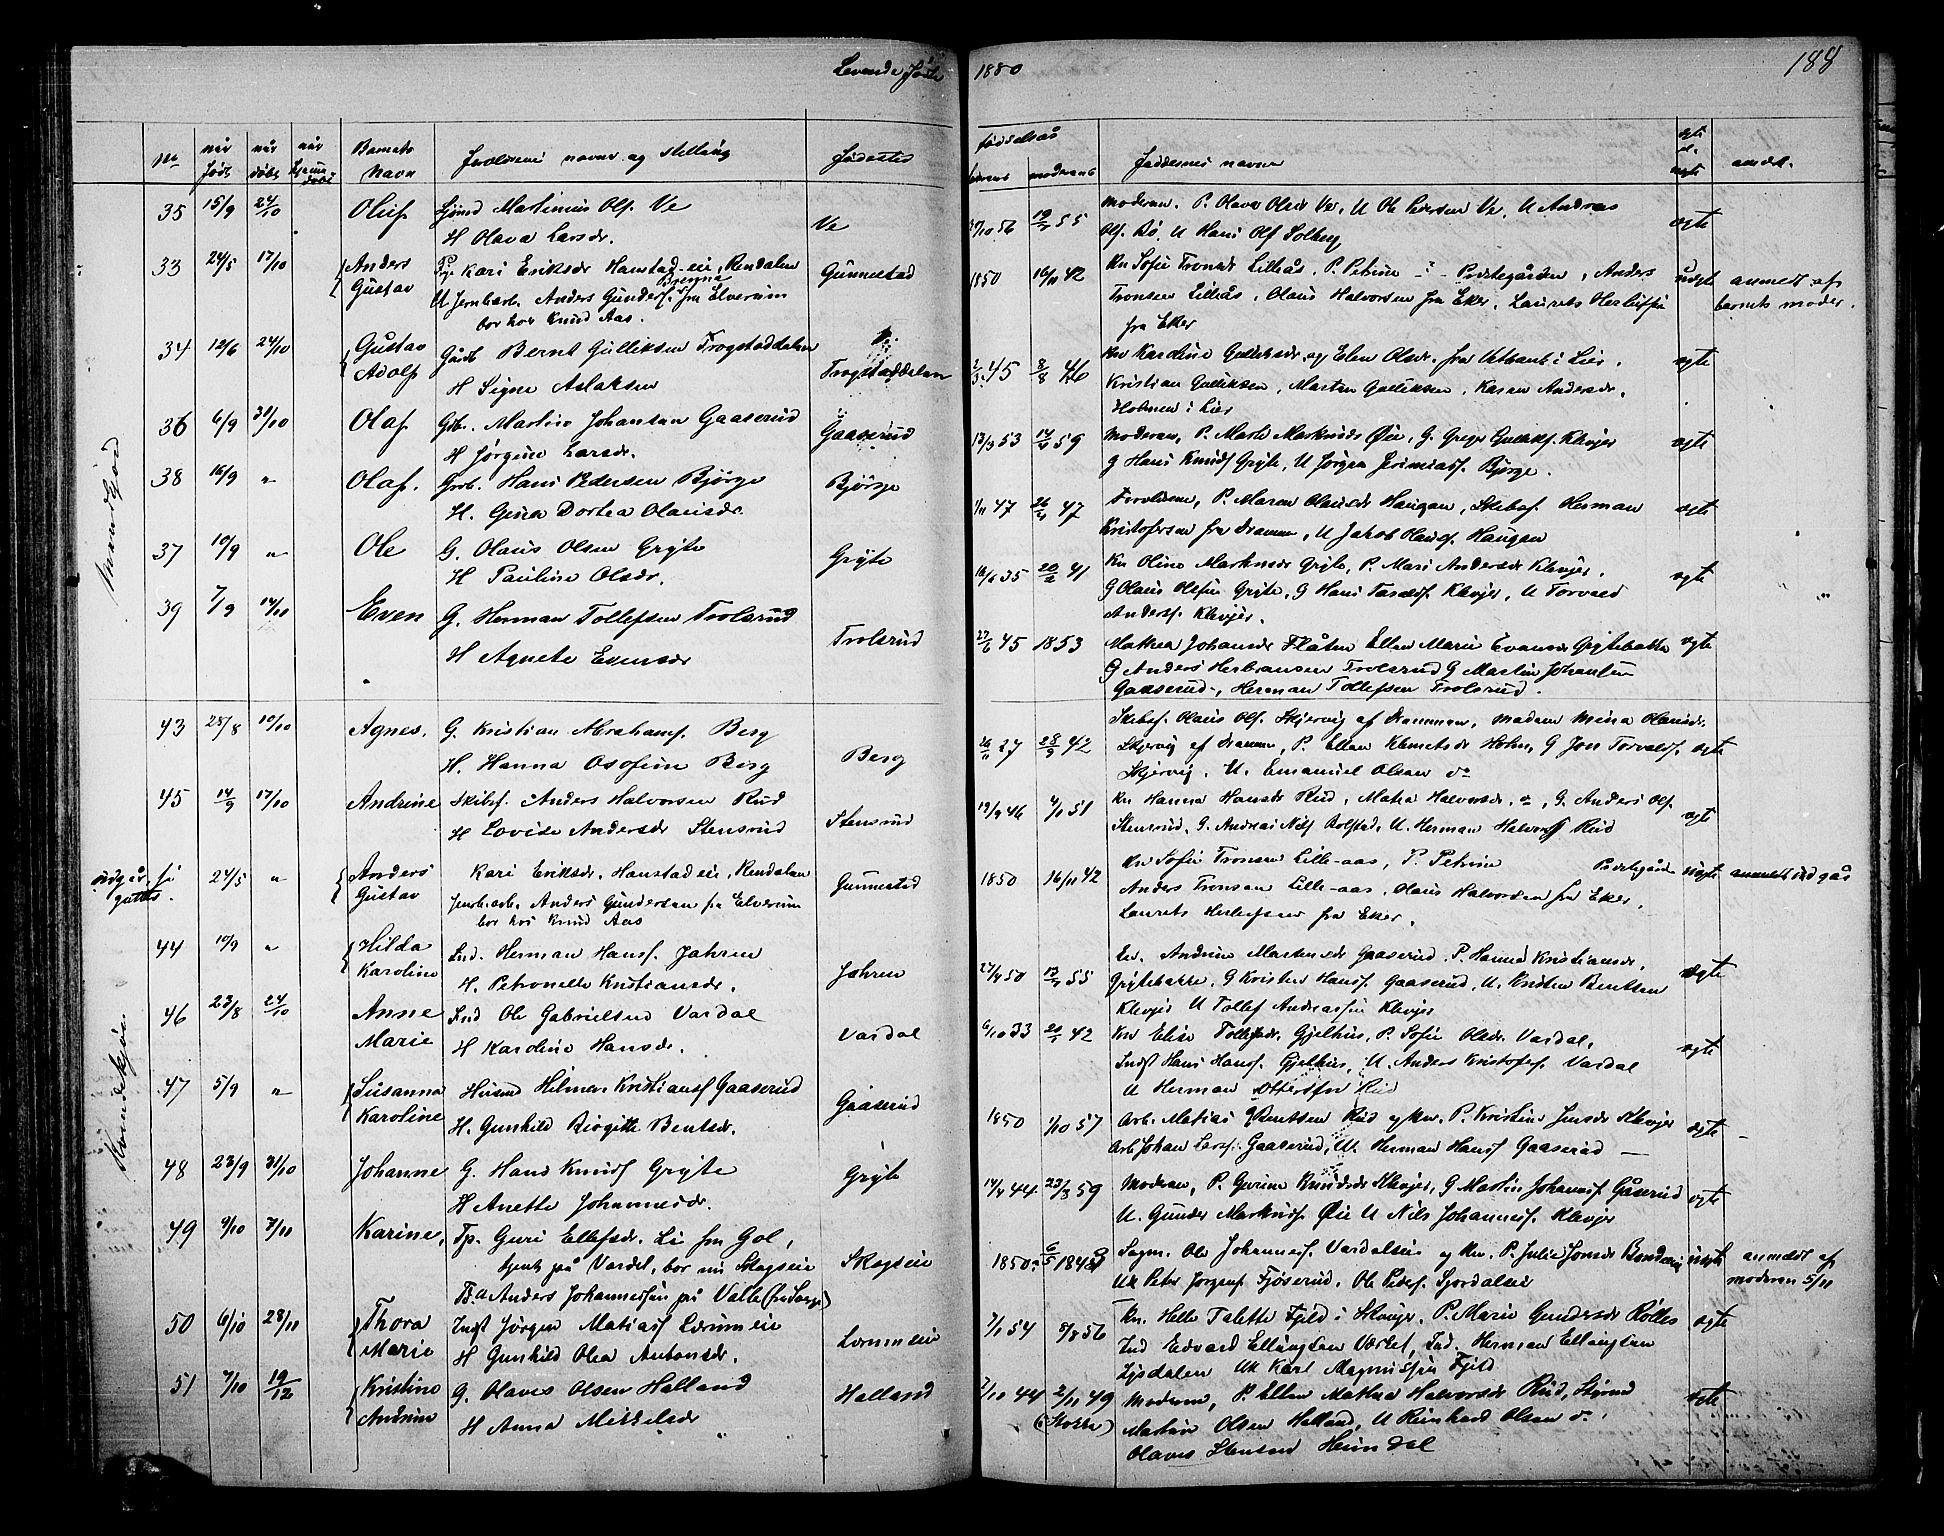 Levende fødte
1880
188
No
når født
når døbt
når hjemmedøbt
Barnets navn
Forældrenes navne og stilling
fødested
fødselsår
faderens
moderens
Faddernes navne
ægte el. uægte
anmrk.
Mandkjød
35 15/9 24/10 Oluf
Martinius Ols. Ve
H Olava Larsdr.
Ve
56 55
Moderen, P. Olava Olsdr Ve, U Ole Pedersen Ve, U Andreas
Ols. Bø, U Hans Ols Solberg
ægte
33 24/5 17/10 Anders Gustav
Kari Eriksdr Hanstad-eie, Rendalen
U Jernbarb. Anders Gunders. fra Elverum
bor hos Knud Aas.
Gunnestad
1850 16/11 42
Kn Sofie Tronsdr Lilleås, P. Petrine Præstegården, Anders
Tronsen Lilleås, Olaus Halvorsen fra Eker, Laurets Herlufsen
fra Eker
uægte
anmeldt af
barnets moder.
34 12/6 24/10 Gustav Adolf
Bernt Gulliksen Trogstaddalen
H Signe Aslaksen
Trogstaddalen
45 8/8 46
Kn Karoline Gulliksdr. og Elen Olsdr. fra i Lier.
Kristian Gulliksen, Marten Gulliksen, Karen Andersdr.
Holmen i Lier
ægte
36 6/9 31/10 Olaf
Gbr. Martin Johansen Gaaserud
H Jørgine Larsdr.
Gaaserud
13/9 53 59
Moderen, P. Marte Markusdr Øie, G. Greger Gulliks. Klevjer
G Hans Knuds Gryte, U Jørgen Jerimias. Bjørge.
ægte
38 16/9 " Olaf.
Hans Pedersen Bjørge
H. Gina Dortea Olausdr.
Bjørge
1/11 47 47
Forældrene, P. Maren Olausdr Haugan, Skibsf. Herman
Kristofersen fra Drammen, U Jakob Hans. Haugan
ægte
37 10/9 " Ole
G. Olaus Olsen Gryte
H Pauline Olsdr.
Gryte
35 41
Kn Oline Markusdr Gryte, P. Mari Andersdr Klevjer.
G Olaus Olsen Gryte, G Hans Klevjer, U Torvald
Anders. Klevjer.
ægte
39 7/9 14/10 Even
G. Herman Tollefsen Trolsrud
H Agnete Evensdr
Trolsrud
45 1853
Matea Johansdr Flåten Ellen Marie Evensdr Grytebakke
G Anders Herbransen Trolsrud G Martin Johansen
Gaaserud, Herman Tollefsen Trolsrud.
ægte
Kvindekjøn
43 28/8 10/10 Agnes.
G. Kristian Abrahams. Berg
H. Hanna Berg
Berg
27 28/9 42
Skibsf. Olaus Ols. Skjervig af Drammen, Madam Mina Olausdr.
Skjervig af Drammen, P. Ellen Klemetsdr Holm, G Jon Torvalds.
Skjervig, U. Emanuel Olsen do
ægte
45 14/9 17/10 Andrine
Skibsf. Anders Halvorsen Rud
H Lovise Andersdr Stensrud
Stensrud
19/9 46 4/1 51
Kn Hanna Hansdr Rud, Matea Halvorsdr. do, G. Anders Ols.
Stensrud, G. Andreas Nils Rolstad, U. Herman Halvors Rud
ægte
udgår,
24/5 " Anders Gustav
Kari Eriksdr. Hanstadeie, Rendalen
Jernb.arb. Anders Gundersen fra Elverum
bor hos Knud Aas
Gunnestad
1850 16/11 42
Kn Sofie Tronsen Lille-aas, P. Petrine Præstegård
Anders Tronsen Lille-aas, Olaus Halvorsen fra Eker,
Laurets Herlufsen fra Eker.
uægte
44 10/9 " Hilda Karoline
Ind. Herman Hans. Jahren
H. Petronelle Kristiansdr.
Jahren
50 55
Andrine Martensdr Gaaserud, P. Hanna Kristiansdr.
Grytebakke, G Kristen Hans. Gaaserud, U. Kristen Bentsen
Klevjer U Tollef Andreassen Klevjer
ægte
46 23/8 24/10 Anne Marie
Ind Ole Gabrielsen Vardal
H Karoline Hansdr.
Vardal
6/10 33 42
Kn Elise Tollefsdr. Gjelhus, P. Sofie Olsdr. Vardal.
Indst Hans Hans. Gjelhus, U. Anders Kristofs. Vardal
U Herman Ottersen Rud
ægte
47 5/9 " Susanna Karoline
Husmd Hilmer Kristians Gaaserud
H. Gunhild Birgitte Bentsdr.
Gaaserud
1850 1/10 57
Arb. Matias Bentsen Rud og kn. P. Kristine Jensdr Klevjer
Arb Johan Lars. Gaaserud, U. Herman Hans Gaaserud
ægte
48 23/9 31/10 Johanne
G. Hans Knuds Gryte
H Anette Johannesdr.
Gryte
44 23/3 59
Moderen, P. Gurine Knudsdr Klevjer, G Martin Johans. Gåserud
U. Gunder Markus. Øie U Nils Johannes. Klevjer
ægte
49 9/10 7/11 Karine,
Tp. Guri Ellefsdr. Li fra Gol,
tjente på Vardal, bor nu Skogseie
Anders Johannessen på Valle
Skogseie
1850 6/5 1848
Sagm. Ole Johannes. Vardalseie og kn. P. Julie Jonsdr
Uk Peter Jørgens Fjøserud, Ole Peders. Gjordalseie
uægte
anmeldt af
moderen 5/11
50 6/10 28/11 Thora Marie
Indst Jørgen Matias Lerumeie
H Gunhild Olea Antonsdr.
Lerumeie
7/1 54 8/8 56
Kn. Helle Talette Fjeld i Skauger, P. Marie Gundersdr Rølles
Ind Edvard Ellingsen Værlet, Ind. Herman Ellingsen
Lysdalen Uk Karl Magnussen Fjeld
ægte
51 7/10 19/12 Kristine Andrine
G. Olaves Olsen Halland
H Anna Mikkelsdr
Halland
7/10 44 2/11 49
Moderen, P. Ellen Mathea Halvorsdr Rud, Styrmd
Martin Olsen Halland, U Reinhard Olsen do.
Olaves Stensen Heimdal
ægte